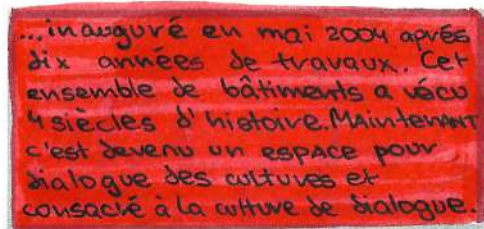 ...inauguré en mai 2004 après
dix années de travaux. Cet
ensemble de bâtiments a vécu
4 siècles d'histoire. Maintenant
c'est devenu un espace pour
dialogue des cultures et
consacré à la culture de dialogue.